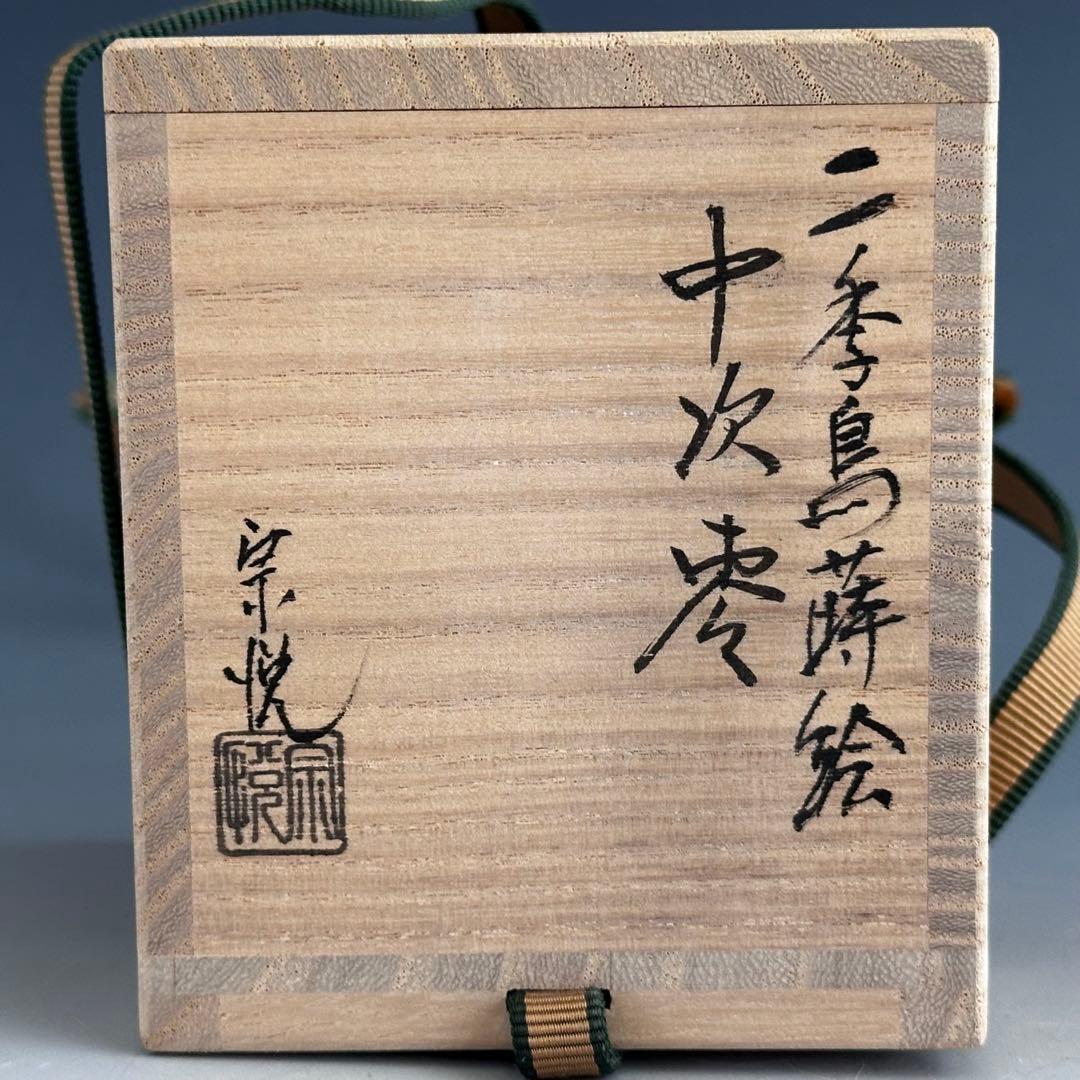 二季鳥蒔絵
中次棗
宗悦
宗悦